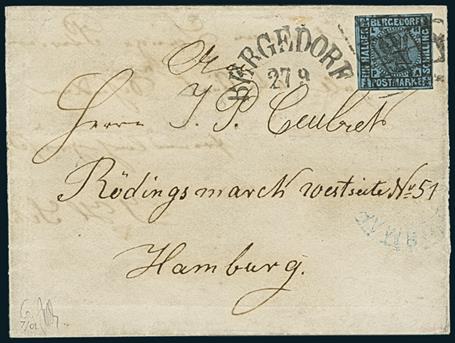 BERGEDORF
27 9
BERGEDORF
EIN HALBER
SCHILLING
POSTMARKE
Herrn J. P.
Rödingsmarch westseite No 51
Hamburg.